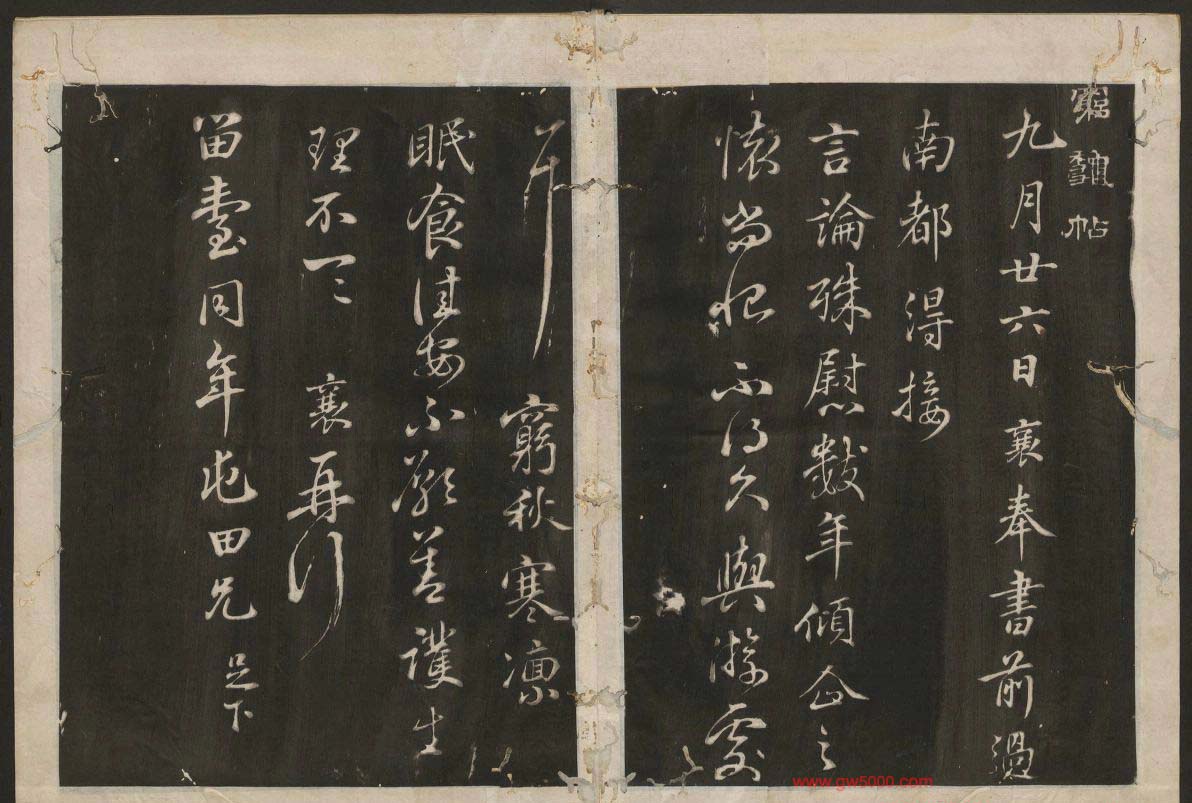 帖
九月廿六日襄奉書前過
南都得接
言論殊慰數年傾企之
懷尚恨不得久與游處
耳 窮秋寒凜
眠食佳安不善護生
理不一一 襄再行
留臺同年屯田兄足下
www.gw5000.com